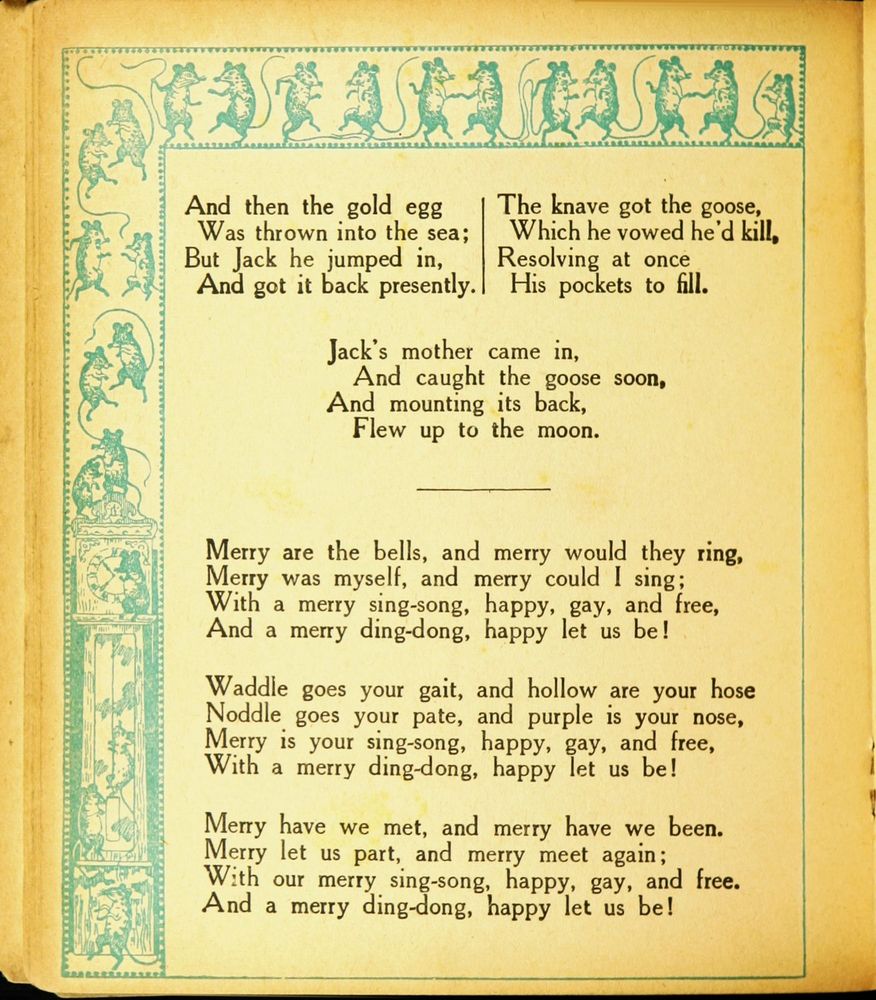 And then the gold egg
Was thrown into the sea;
But Jack he jumped in,
And got it back presently.
The knave got the goose,
Which he vowed he'd kill,
Resolving at once
His pockets to fill.
Jack's mother came in,
And caught the goose soon,
And mounting its back,
Flew up to the moon.
Merry are the bells, and merry would they ring,
Merry was myself, and merry could I sing;
With a merry sing-song, happy, gay, and free,
And a merry ding-dong, happy let us be!
Waddle goes your gait, and hollow are your hose
Noddle goes your pate, and purple is your nose,
Merry is your sing-song, happy, gay, and free,
With a merry ding-dong, happy let us be!
Merry have we met, and merry have we been.
Merry let us part, and merry meet again;
With our merry sing-song, happy, gay, and free.
And a merry ding-dong, happy let us be!